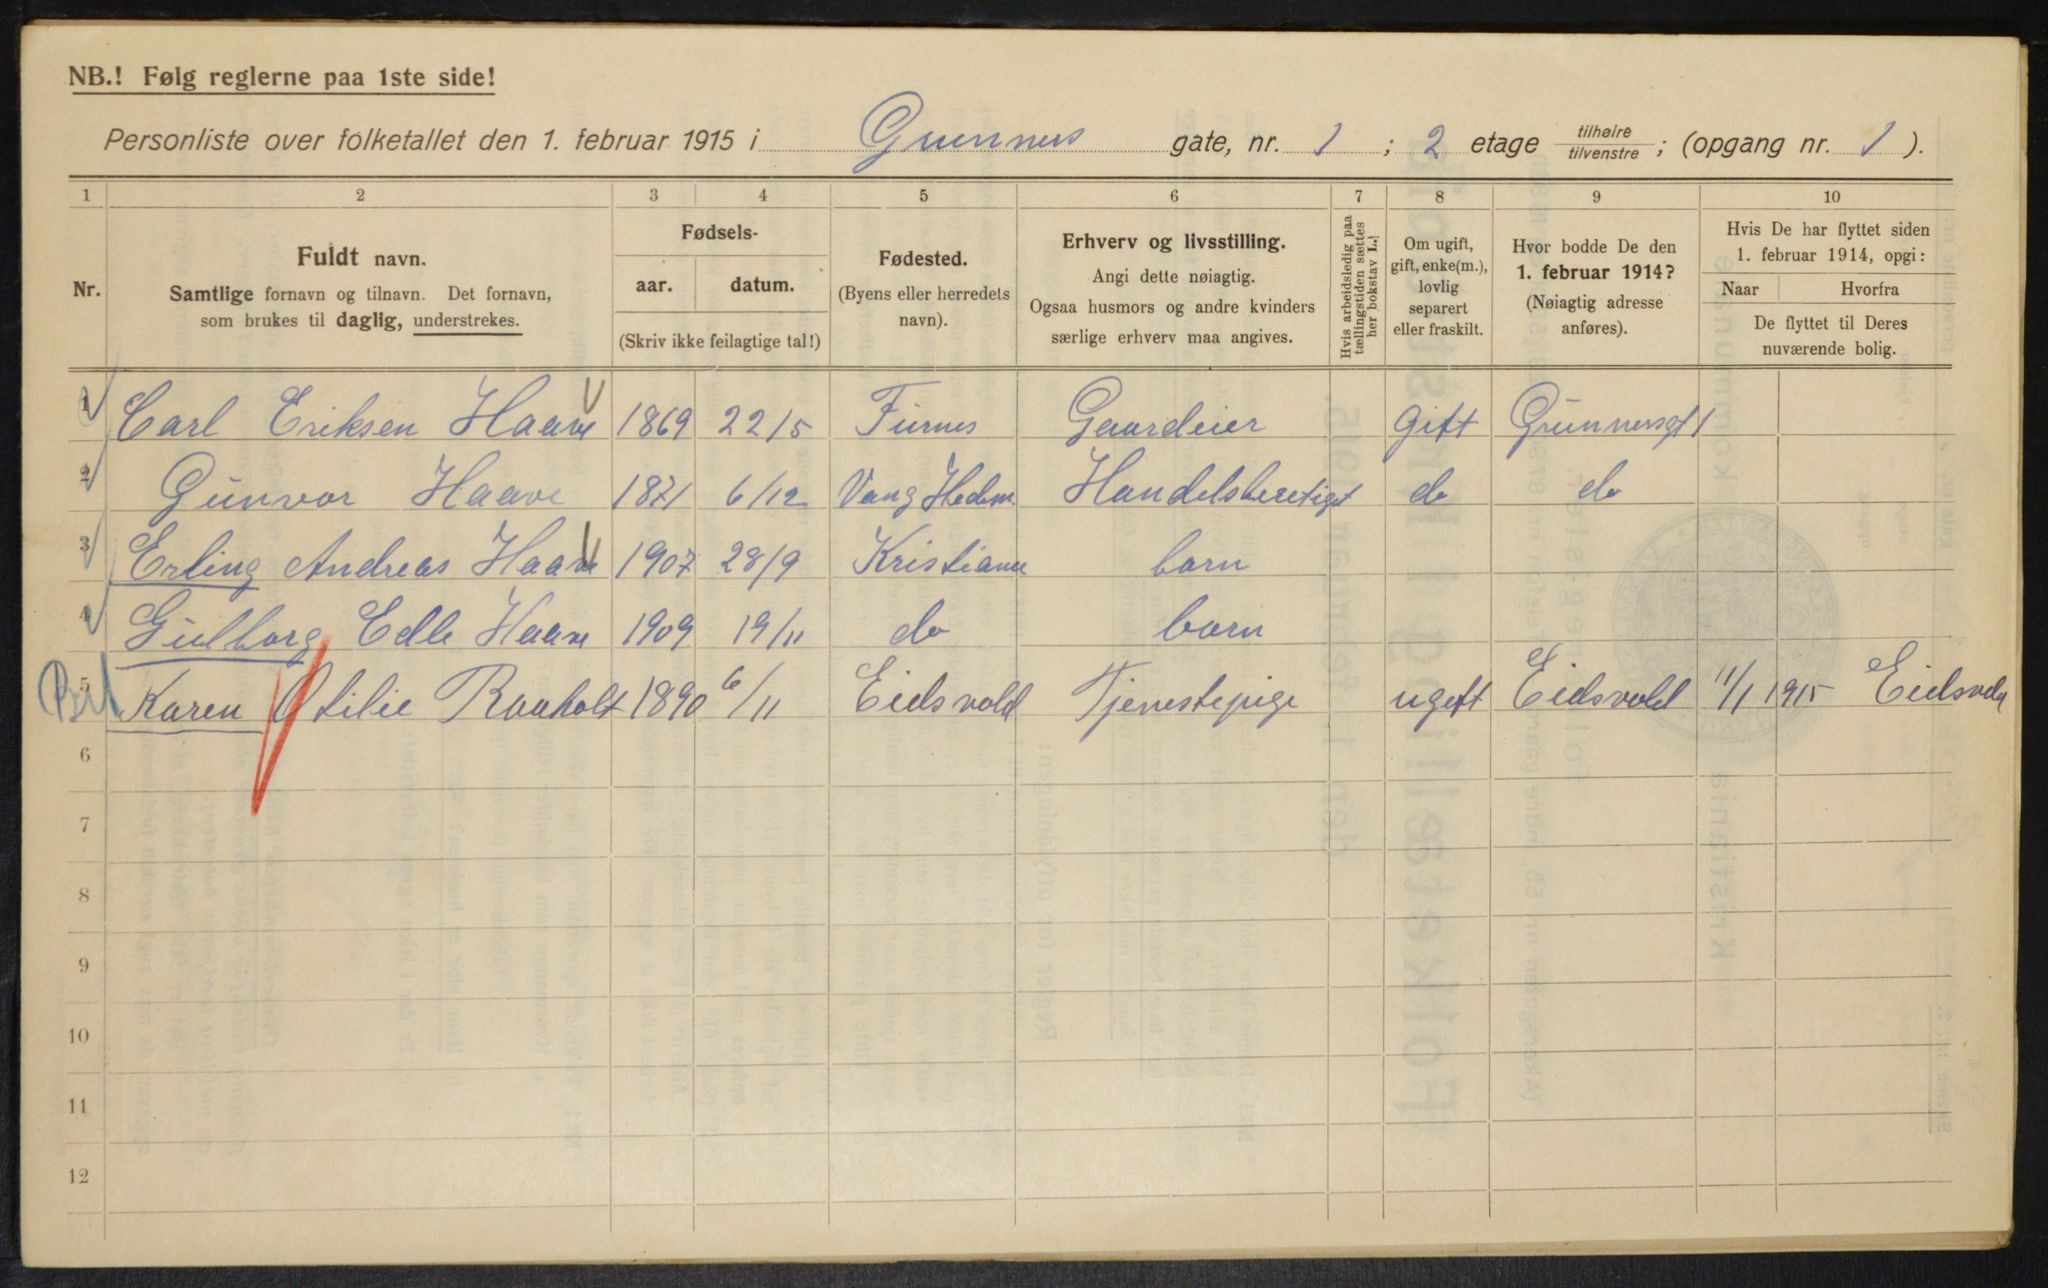 NB.! Følg reglerne paa 1ste side!
Personliste over folketallet den 1. februar 1915 i Grunners gate, nr. 1 ; 2 etage tilhøire tilvenstre ; (opgang nr. 1 ).
1 2 3 4 5 6 7 8 9 10
Nr.
Fuldt navn.
Samtlige fornavn og tilnavn. Det fornavn,
som brukes til daglig, understrekes.
Fødsels-
aar. datum.
(Skriv ikke feilagtige tal!)
Fødested.
(Byens eller herredets
navn).
Erhverv og livsstilling.
Angi dette nøiagtig.
Ogsaa husmors og andre kvinders
særlige erhverv maa angives.
Hvis arbeidsledig paa
tællingstiden sættes
her bokstav L.!
Om ugift,
gift, enke(m.),
lovlig
separert
eller fraskilt.
Hvor bodde De den
1. februar 1914?
(Nøiagtig adresse
anføres).
Hvis De har flyttet siden
1. februar 1914, opgi:
Naar Hvorfra
De flyttet til Deres
nuværende bolig.
1 Carl Eriksen Haave 1869 22/5 Furnes Gaardeier gift Grunnersgt 1
2 Gunvor Haave 1871 6/12 Vang Hedem. Handelsberetiget do do
3 Erling Andreas Haave 1907 28/9 Kristiania barn
4 Gudborg Edle Haave 1909 19/11 do barn
5 Karen Otilie Raaholt 1890 6/11 Eidsvold Tjenestepige ugift Eidsvold 11/1 1915 Eidsvold
6
7
8
9
10
11
12